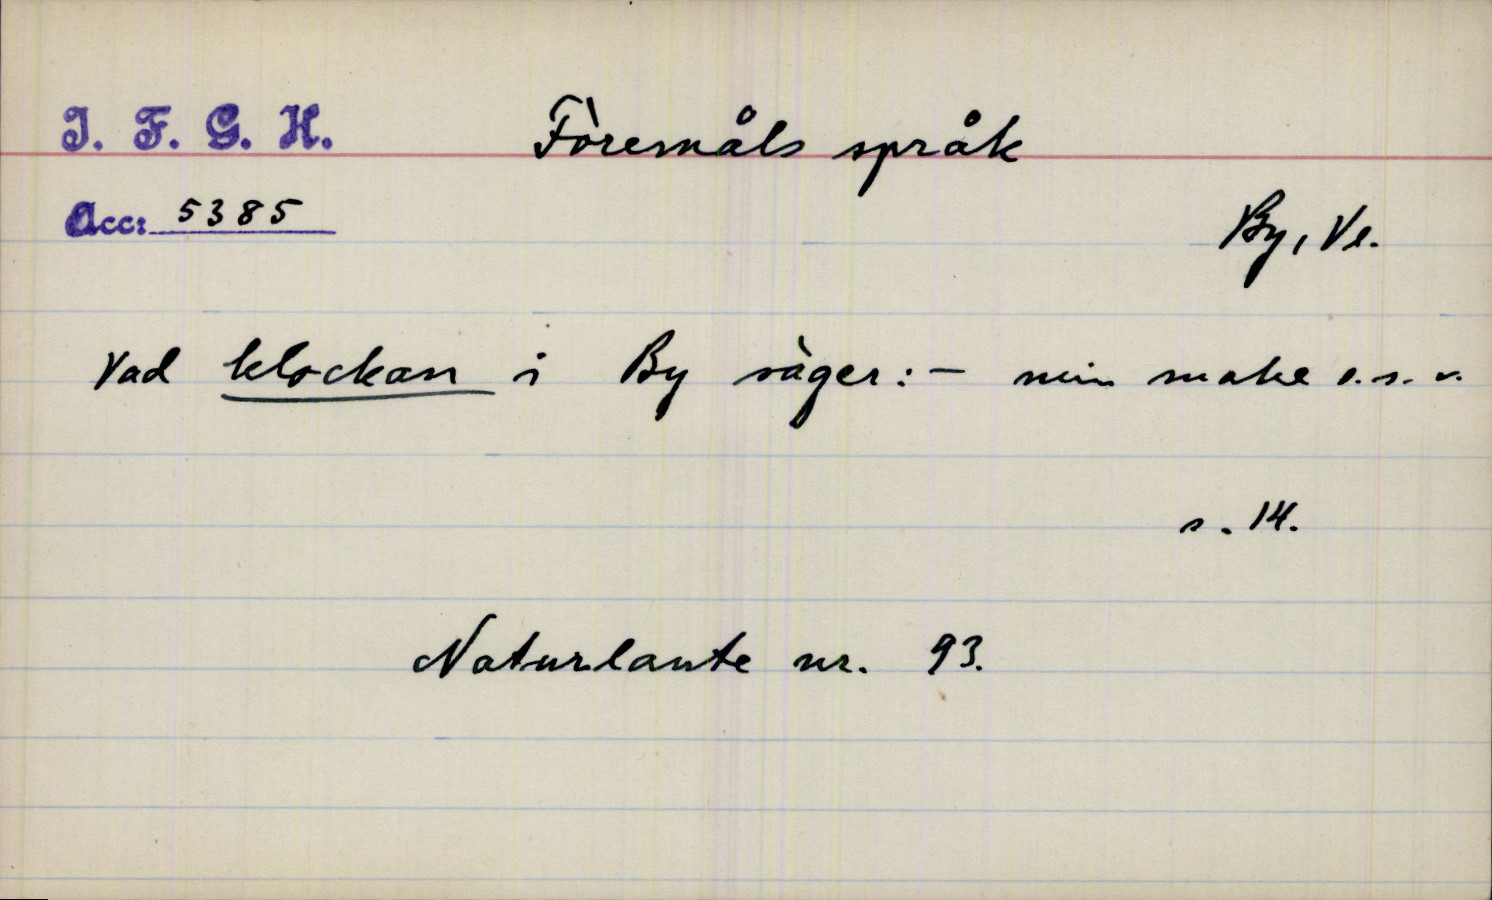 I. F. G. H.
Föremåls språk
Acc: 5385
By, Ve.
Vad klockan i By säger: - min make o.s.v.
s. 14.
Naturlaute nr. 93.